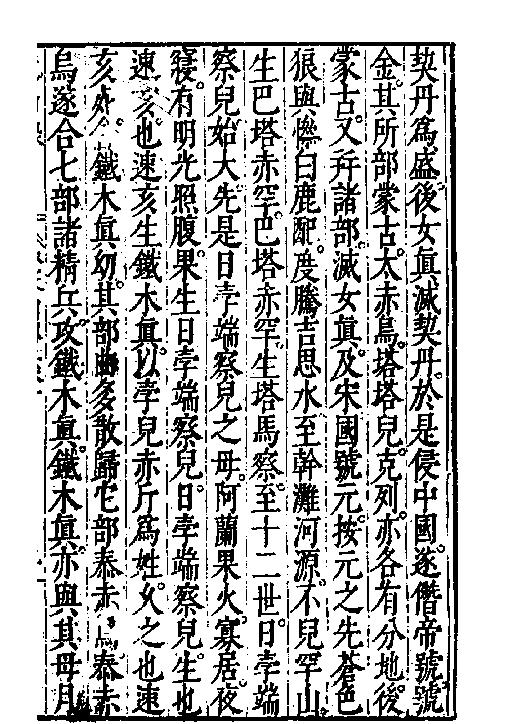 契丹爲盛後女眞滅契丹於是侵中國遂僭帝號號
金其所部蒙古太赤烏塔塔兒克列亦各有分地後
蒙古又幷諸部滅女眞及宋國號元按元之先蒼色
狼與慘白鹿配度騰吉思水至幹灘河源不兒罕山
生巴塔赤罕巴塔赤罕生塔馬察至十二世日孛端
察兒始大先是日孛端察兒之母阿蘭果火寡居夜
寢有明光照腹果生日孛端察兒日孛端察兒生也
速亥也速亥生鐵木眞以孛兒赤斤爲姓久之也速
亥死鐵木眞幼其部曲多散歸它部泰赤烏泰赤
烏遂合七部諸精兵攻鐵木眞鐵木眞亦與其母月